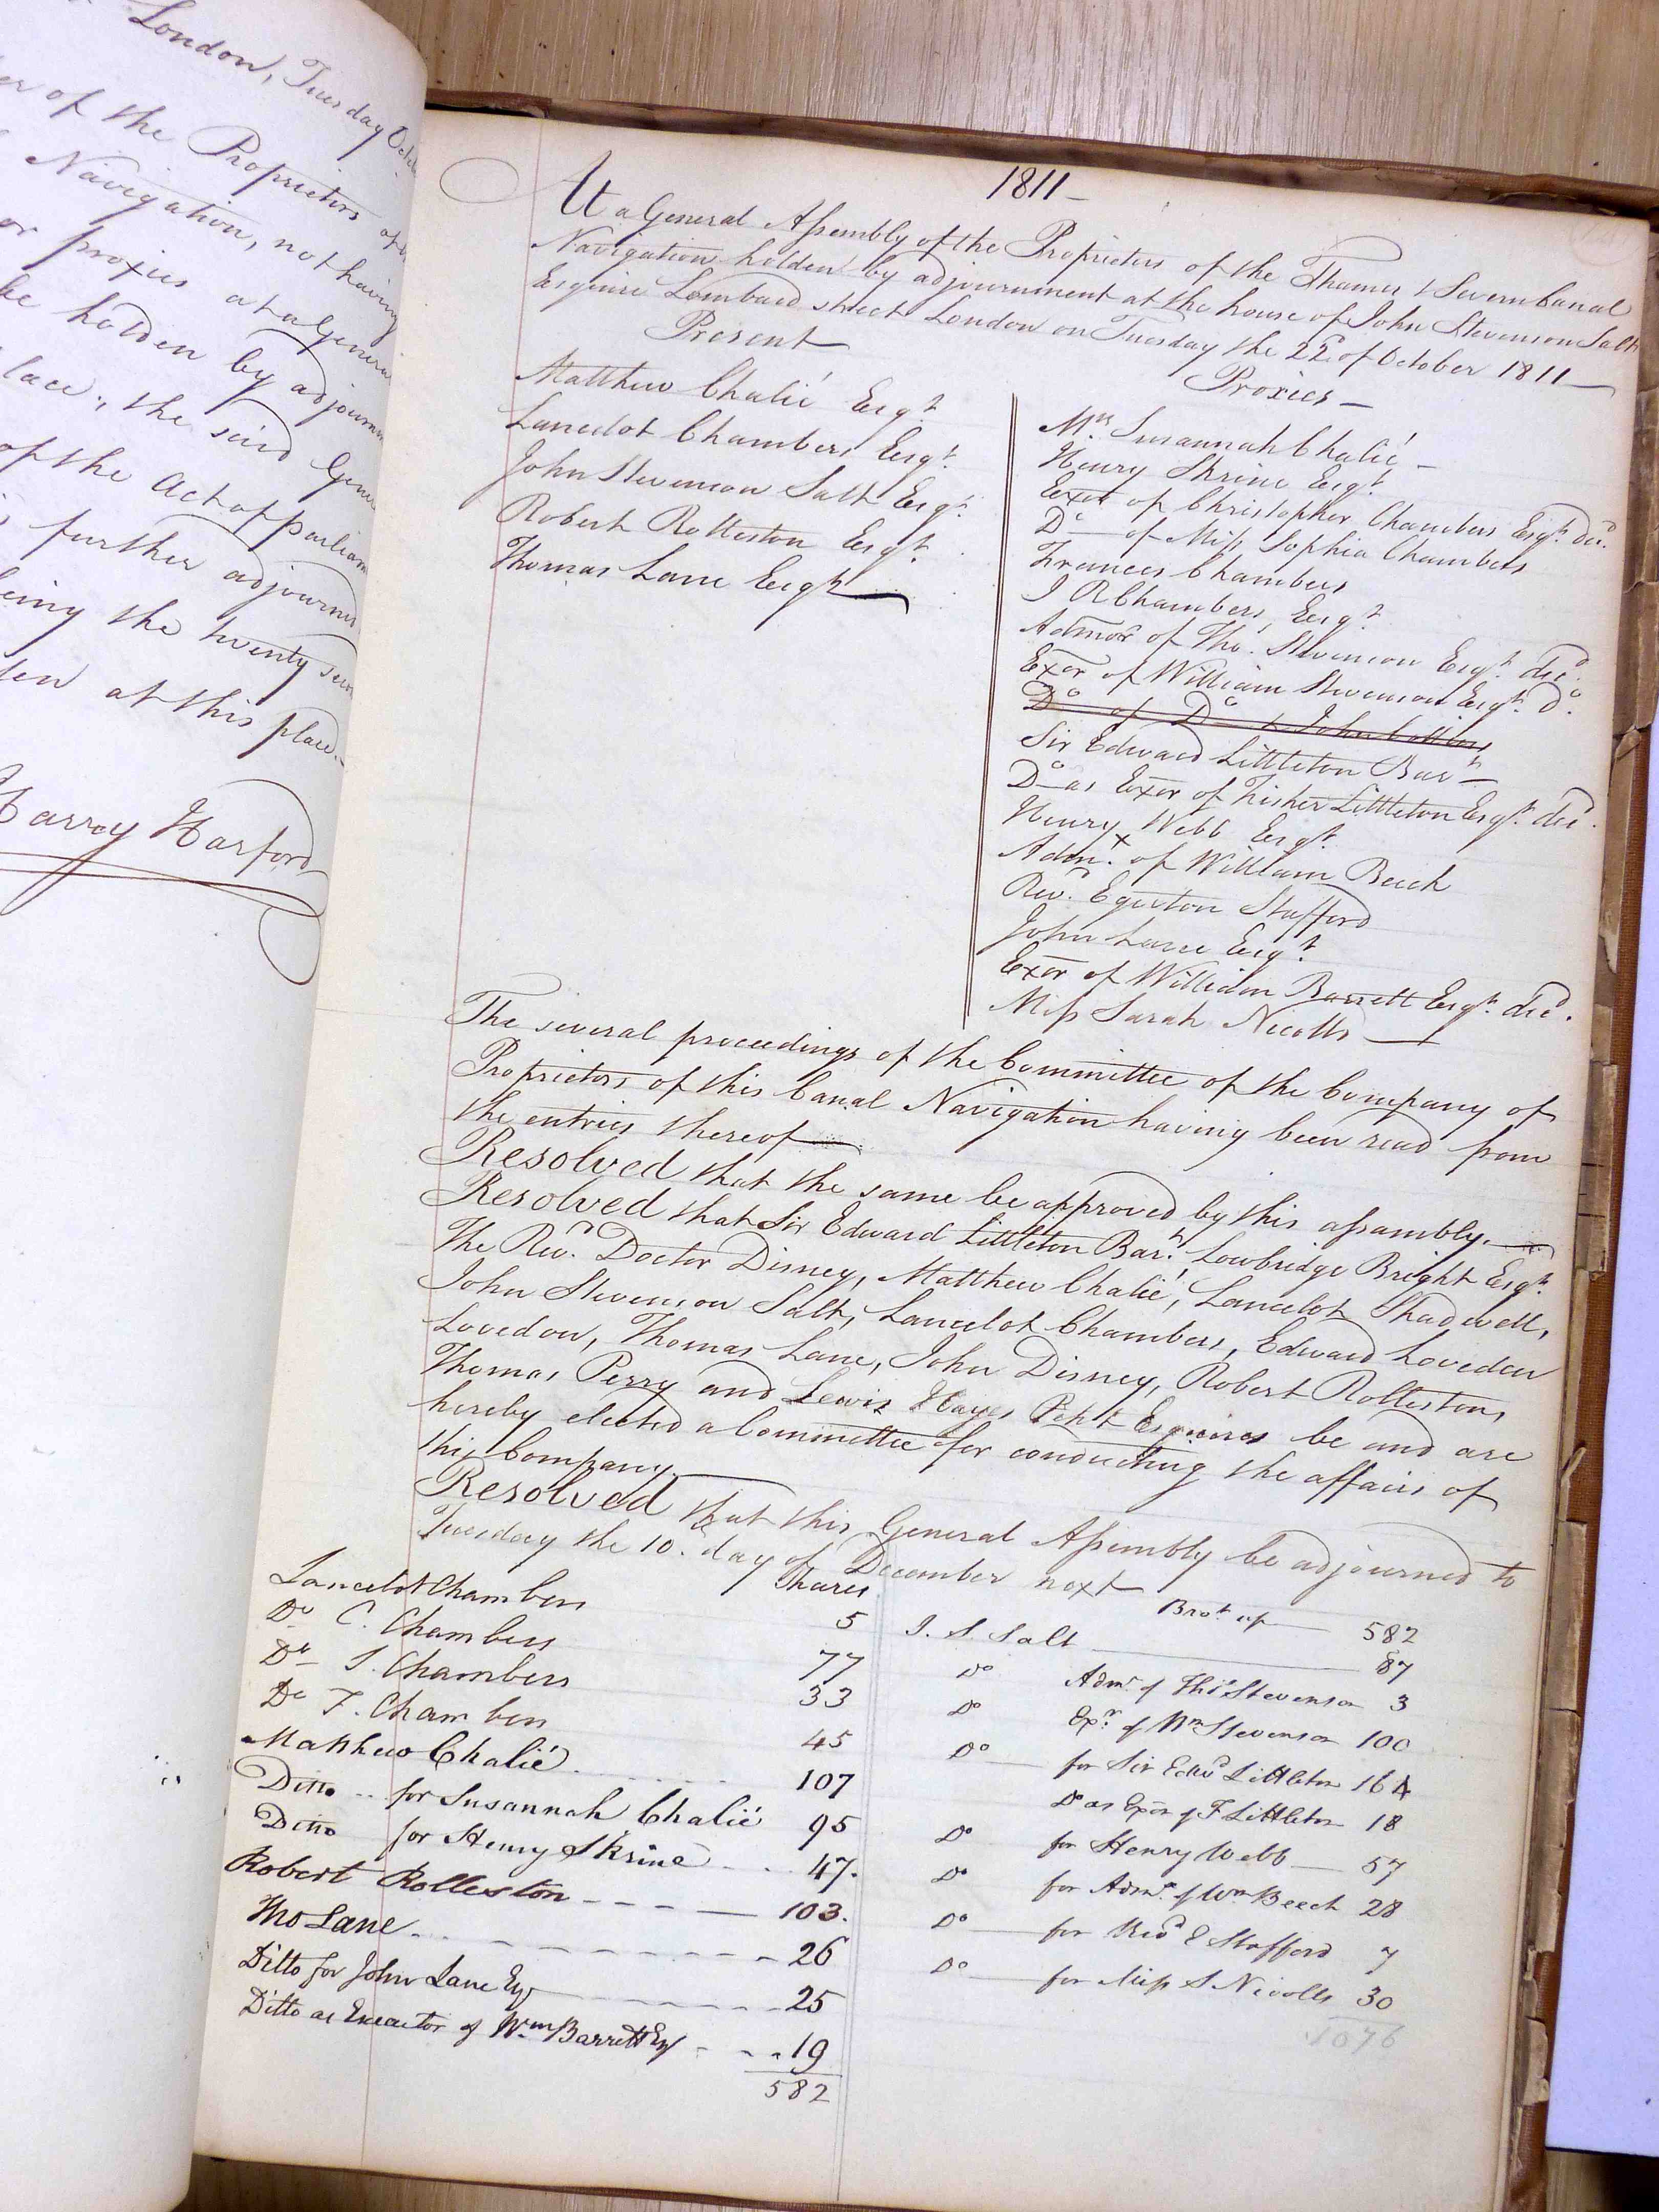 London, Tuesday Octo
of the Proprietors of
Navigation, not having
or proxies at a Genera
be holden by adjourn
lace, the said Gene
of the Act of parliam
further adjourned
being the twenty seco
at this place.
Harry Harford
1811 –
At a General Assembly of the Proprietors of the Thames & Severn Canal
Navigation holden by adjournment at the house of John Stevenson Salt
Esquire Lombard street London on Tuesday the 22d. of October 1811
Present
Matthew Chalié Esqr.
Lancelot Chambers Esqr.
John Stevenson Salt Esqr.
Robert Rolleston Esqr.
Thomas Lane Esqr.
Proxies –
Mrs. Susannah Chalié –
Henry Skrine Esqr.
Exor of Christopher Chambers Esqr. decd.
Do – of Miss Sophia Chambers
Frances Chambers
J R Chambers, Esqr.
Admor of Tho. Stevenson Esqr. decd.
Exor of William Stevenson Esqr. Do.
Do of Do & John Collins
Sir Edward Littleton Bart –
Do as Exor of Fisher Littleton Esqr. decd.
Henry Webb Esqr.
Admx. of William Beech
Revd. Egerton Stafford
John Lane Esqr.
Exor of William Barrett Esqr. decd.
Miss Sarah Nicolls
The several proceedings of the Committee of the Company of
Proprietors of this Canal Navigation having been read from
the entries thereof
Resolved that the same be approved by this assembly.
Resolved that Sir Edward Littleton Bart. Lowbridge Bright Esqr.
The Revd. Doctor Disney, Matthew Chalié, Lancelot Shadwell,
John Stevenson Salt, Lancelot Chambers, Edward Loveden
Loveden, Thomas Lane, John Disney, Robert Rolleston,
Thomas Perry and Lewis Hayes Petit Esquires be and are
hereby elected a Committee for conducting the affairs of
this Company.
Resolved that this General Assembly be adjourned to
Tuesday the 10. day of December next
Shares
Lancelot Chambers 5
Do C. Chambers 77
Do S. Chambers 33
Do F. Chambers 45
Matthew Chalié 107
Ditto .. for Susannah Chalié 95
Ditto for Henry Skrine 47.
Robert Rolleston 103.
Tho Lane 26
Ditto for John Lane Esq 25
Ditto as Executor of Wm Barrett Esq 19
582
Brot. up 582
J. S. Salt 87
Do Admr. of Thos Stevenson 3
Do Exr. of Wm Stevenson 100
Do for Sir Edwd Littleton 164
Do as Exor of F Littleton 18
Do for Henry Webb 57
Do for Admx. of Wm Beech 28
Do for Revd E Stafford 7
Do for Miss S Nicolls 30
1076